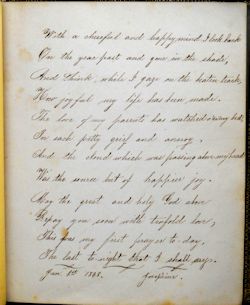 With a cheerful and happy mind I look back
On the year past and gone in the shade,
And think, while I gaze on the beaten track,
How joyful my life has been made.
The love of my parents has watched o'er my bed,
In each petty grief and annoy,
And the cloud which was passing above my head
Was the source but of happier joy.
May the great and holy God above
Repay you soon with twofold love,
This for my first prayer to-day,
The last to-night that I shall say.
Jan 1st Josephine.